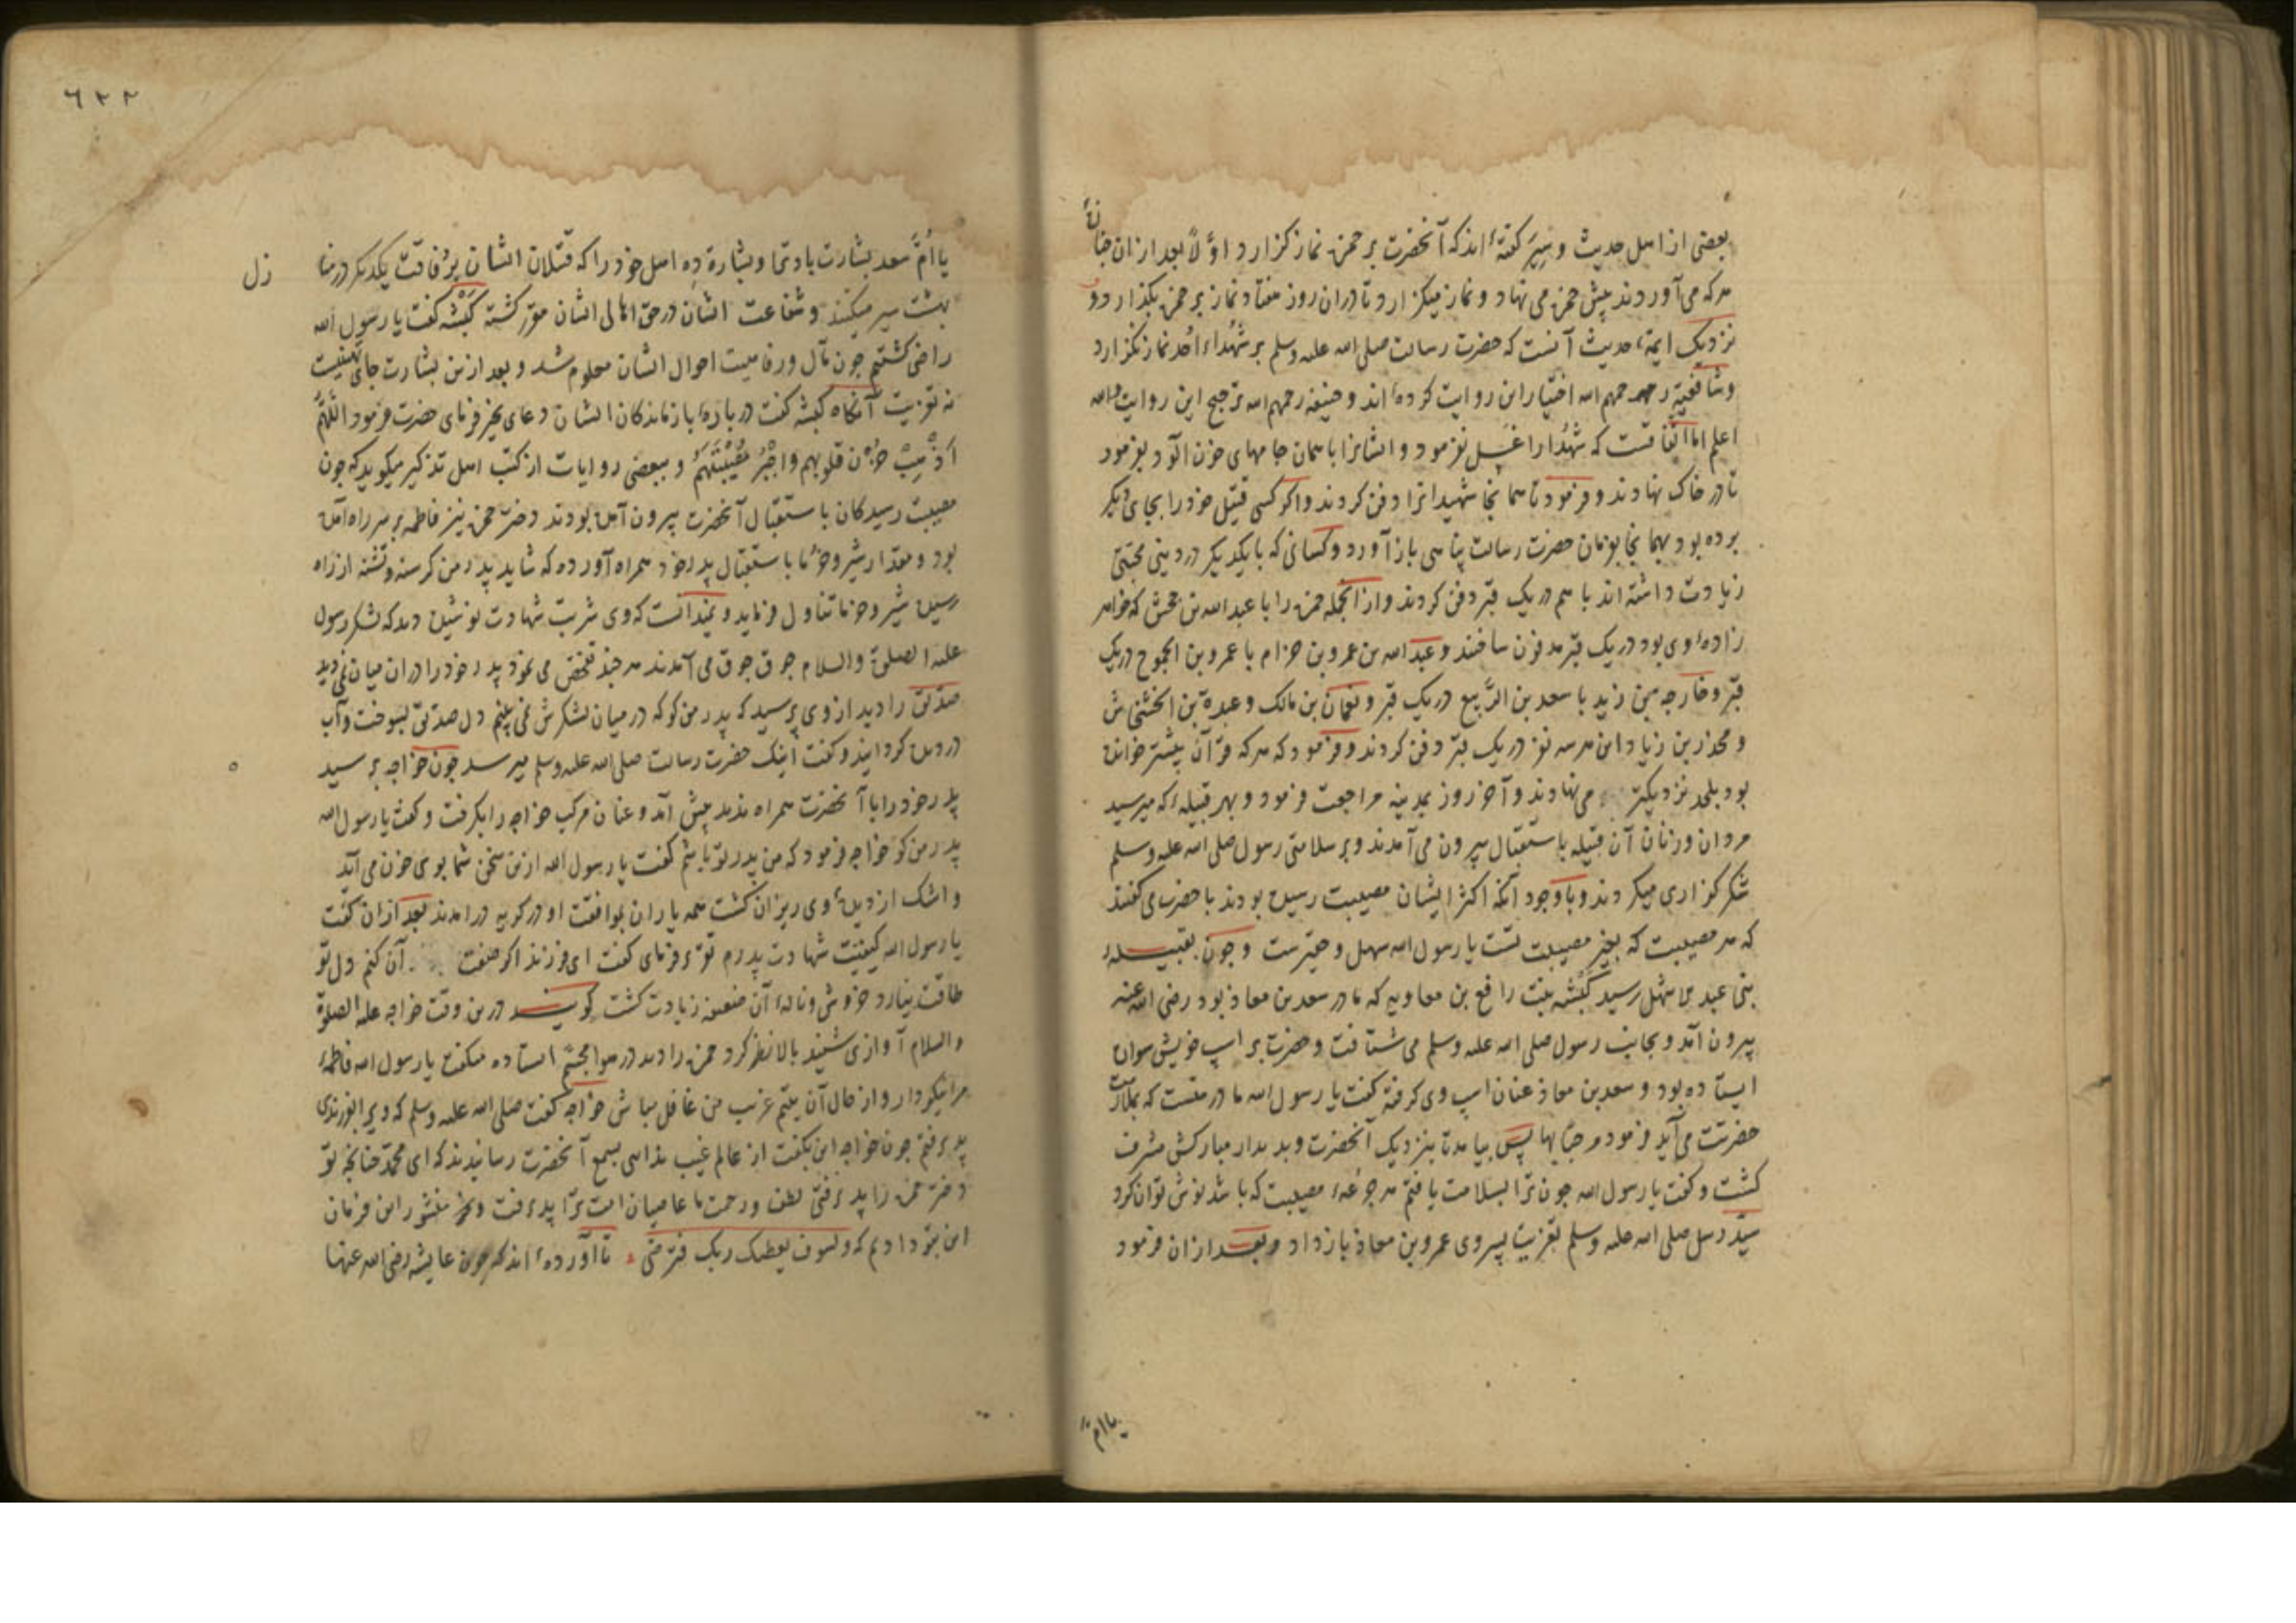 بعضی از اهل حدیث و سیر کفته‌اند که آنحضرت بر حمزه نماز کزارد اوّلاً بعد ازان جنازهٔ
هرکه می‌آوردند پیش حمزه می نهاد و نماز میکزارد تا دران روز هفتاد نماز بر حمزه بکذارد و
نزدیک ایمهٔ حدیث آنست که حضرت رسالت صلی الله علیه وسلم بر شهداء احد نماز نکزارد
وشافعیه رحمهم الله اختیار این روایت کرده‌اند و حنیفه رحمهم الله ترجیح این روایت والله
اعلم اما اتفاقست که شهدا را غسل نفرمود و ایشانرا با همان جامهای خون آلود بفرمود
تا در خاک نهادند و فرمود تا همانجا شهیدانرا دفن کردند واکر کسی قتیل خود را بجای دیکر
برده بود بهمانجا بفرمان حضرت رسالت پناهی باز آورد و کسانی که با یکدیکر در دینی محبتی
زیادت داشته اند با هم در یک قبر دفن کردند و از انجمله حمزه را با عبدالله بن جحش که خواهر
زادهٔ وی بود در یک قبر مدفون ساختند و عبدالله بن عمرو بن حزام با عمرو بن الجموح در یک
قبر و خارجه بن زید با سعد بن الربیع در یک قبر و نعمان بن مالک و عبدة بن الخشخاش
و مجذر بن زیاد این هر سه نفر در یک قبر دفن کردند و فرمود که هرکه قرآن بیشتر خوانده
بود بلحد نزدیکتر می نهادند و آخر روز بمدینه مراجعت فرمود و بهر قبیلهٔ که میرسید
مردان و زنان آن قبیله باستقبال بیرون می آمدند و بر سلامتی رسول صلی الله علیه وسلم
شکر کزاری میکردند و با وجود آنکه اکثر ایشان مصیبت رسیده بودند با حضرت می کفتند
که هر مصیبت که بغیر مصیبت تست یا رسول الله سهل و حقیرست و چون بقبیلهٔ
بنی عبد الاشهل رسید کبشه بنت رافع بن معاویه که مادر سعد بن معاذ بود رضی الله عنه
بیرون آمد و بجانب رسول صلی الله علیه وسلم می شتافت و حضرت بر اسپ خویش سواره
ایستاده بود و سعد بن معاذ عنان اسپ وی کرفته کفت یا رسول الله مادر منست که بملازمت
حضرتت می آید فرمود مرحبا بها پس بیامد تا بنزدیک آنحضرت و بدیدار مبارکش مشرف
کشت و کفت یا رسول الله چون ترا بسلامت یافتم هر جرعهٔ مصیبت که باشد نوش توان کرد
سید رسل صلی الله علیه وسلم تعزیت پسر وی عمرو بن معاذ باز داد و بعد ازان فرمود
یا امّ
٦٢٢
یا امّ سعد بشارت باد ترا و بشارت ده اهل خود را که قتیلان ایشان برفاقت یکدیکر در
زل
بهشت سیر میکنند و شفاعت ایشان در حق اهالی ایشان مقرر کشته کبشه کفت یا رسول الله
راضی کشتیم چون مآل و رفاهیت احوال ایشان معلوم شد و بعد ازین بشارت جای تهنیت
نه تعزیت آنکاه کبشه کفت در بارهٔ بازماندکان ایشان دعای بخیر فرمای حضرت فرمود اللهم
اذهب حزن قلوبهم واجبر مصیبتهم و ببعضی روایات از کتب اهل تذکیر میکوید که چون
مصیبت رسیدکان باستقبال آنحضرت بیرون آمده بودند دختر حمزه نیز فاطمه بر سر راه آمده
بود و مقدار شیر و خرما باستقبال پدر خود همراه آورده که شاید پدر من کرسنه و تشنه از راه
رسیده شیر و خرما تناول فرماید و نمیدانست که وی شربت شهادت نوشیده دید که لشکر رسول
علیه الصلوة والسلام جوق جوق می آمدند هر چند تفحص می نمود پدر خود را دران میان نمی دید
صدیق را دید از وی پرسید که پدر من کو که در میان لشکرش نمی بینم دل صدیق بسوخت و آب
در دیده کردانید و کفت اینک حضرت رسالت صلی الله علیه وسلم میرسد چون خواجه برسید
پدر خود را با آنحضرت همراه ندید پیش آمد و عنان مرکب خواجه را بکرفت و کفت یا رسول الله
پدر من کو خواجه فرمود که من پدر تو باشم کفت یا رسول الله ازین سخن شما بوی خون می آید
و اشک از دیدهٔ وی ریزان کشت همه یاران بموافقت او در کریه درامدند بعد ازان کفت
یا رسول الله کیفیت شهادت پدرم تقریر فرمای کفت ای فرزند اکر صفت آن کنم دل تو
طاقت نیارد خروش و نالهٔ آن ضعیفه زیادت کشت کویند درین وقت خواجه علیه الصلوة
والسلام آوازی شنید بالا نظر کرد حمزه را دید در هوا مجسّم ایستاده میکفت یا رسول الله فاطمهٔ
مرا نیکو دار و از حال آن یتیم غریب من غافل مباش خواجه کفت صلی الله علیه وسلم که ویرا بفرزندی
پذیرفتم چون خواجه این بکفت از عالم غیب ندایی بسمع آنحضرت رسانیدند که ای محمد چنانچه تو
دختر حمزه را پذیرفتی لطف و رحمت ما عاصیان امت ترا پذیرفت و منشور این فرمان
این بتو دادیم که ولسوف یعطیک ربک فترضی تا آورده‌اند که چون عایشه رضی الله عنها